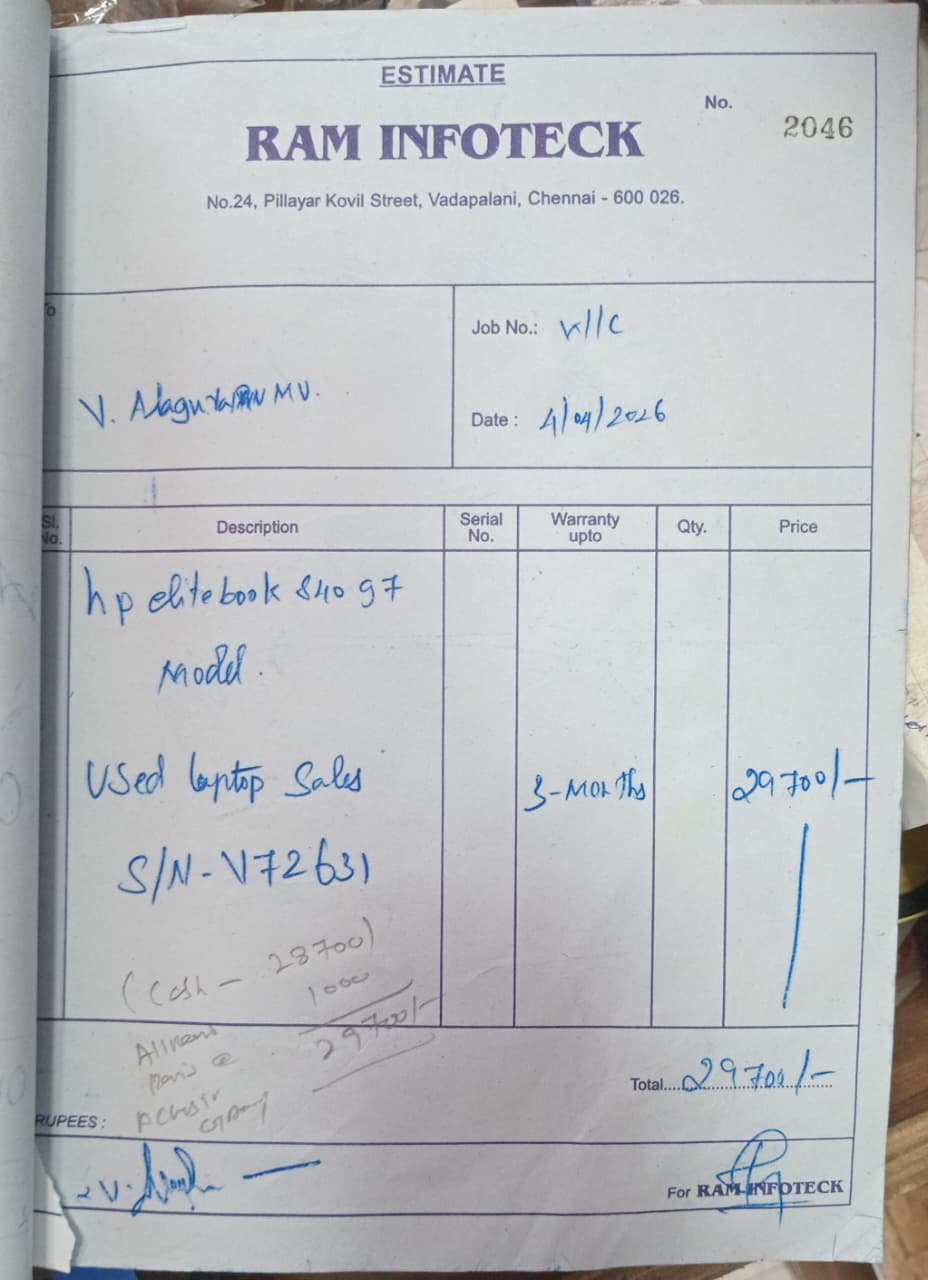 ESTIMATE
No.
2046
RAM INFOTECK
No.24, Pillayar Kovil Street, Vadapalani, Chennai - 600 026.
To
Job No.:
V. MV.
Date : 4/04/2026
Sl. No. Description Serial No. Warranty upto Qty. Price
hp elitebook 840 g7
Model.
Used laptop Sales 3-Months 29700/-
S/N-V72631
(Cash - 28700)
1000
29700/-
Total....29700/-
RUPEES :
For RAM INFOTECK